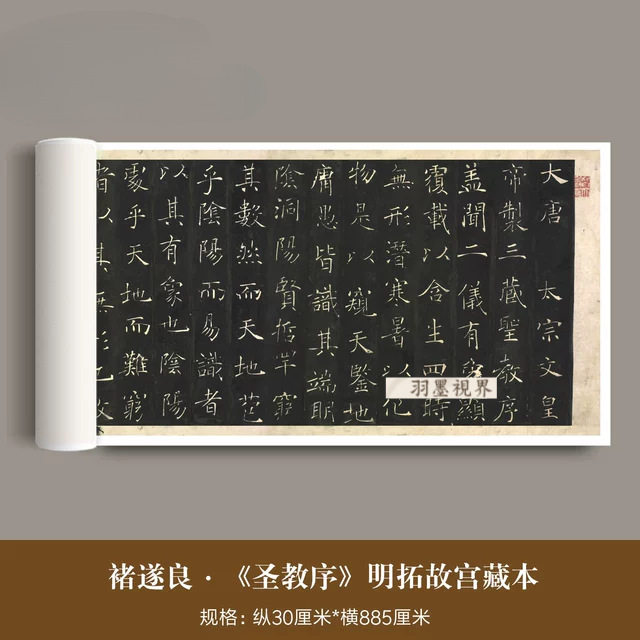 大唐 太宗文皇
帝製三藏聖教序
盖聞二儀有象顯
覆載以含生四時
無形潛寒暑以化
物是以窺天鑒地
庸愚皆識其端明
陰洞陽賢哲罕窮
其數然而天地苞
乎陰陽而易識者
以其有象也陰陽
處乎天地而難窮
者以其無形也故
羽墨視界
褚遂良·《圣教序》明拓故宫藏本
规格：纵30厘米*横885厘米